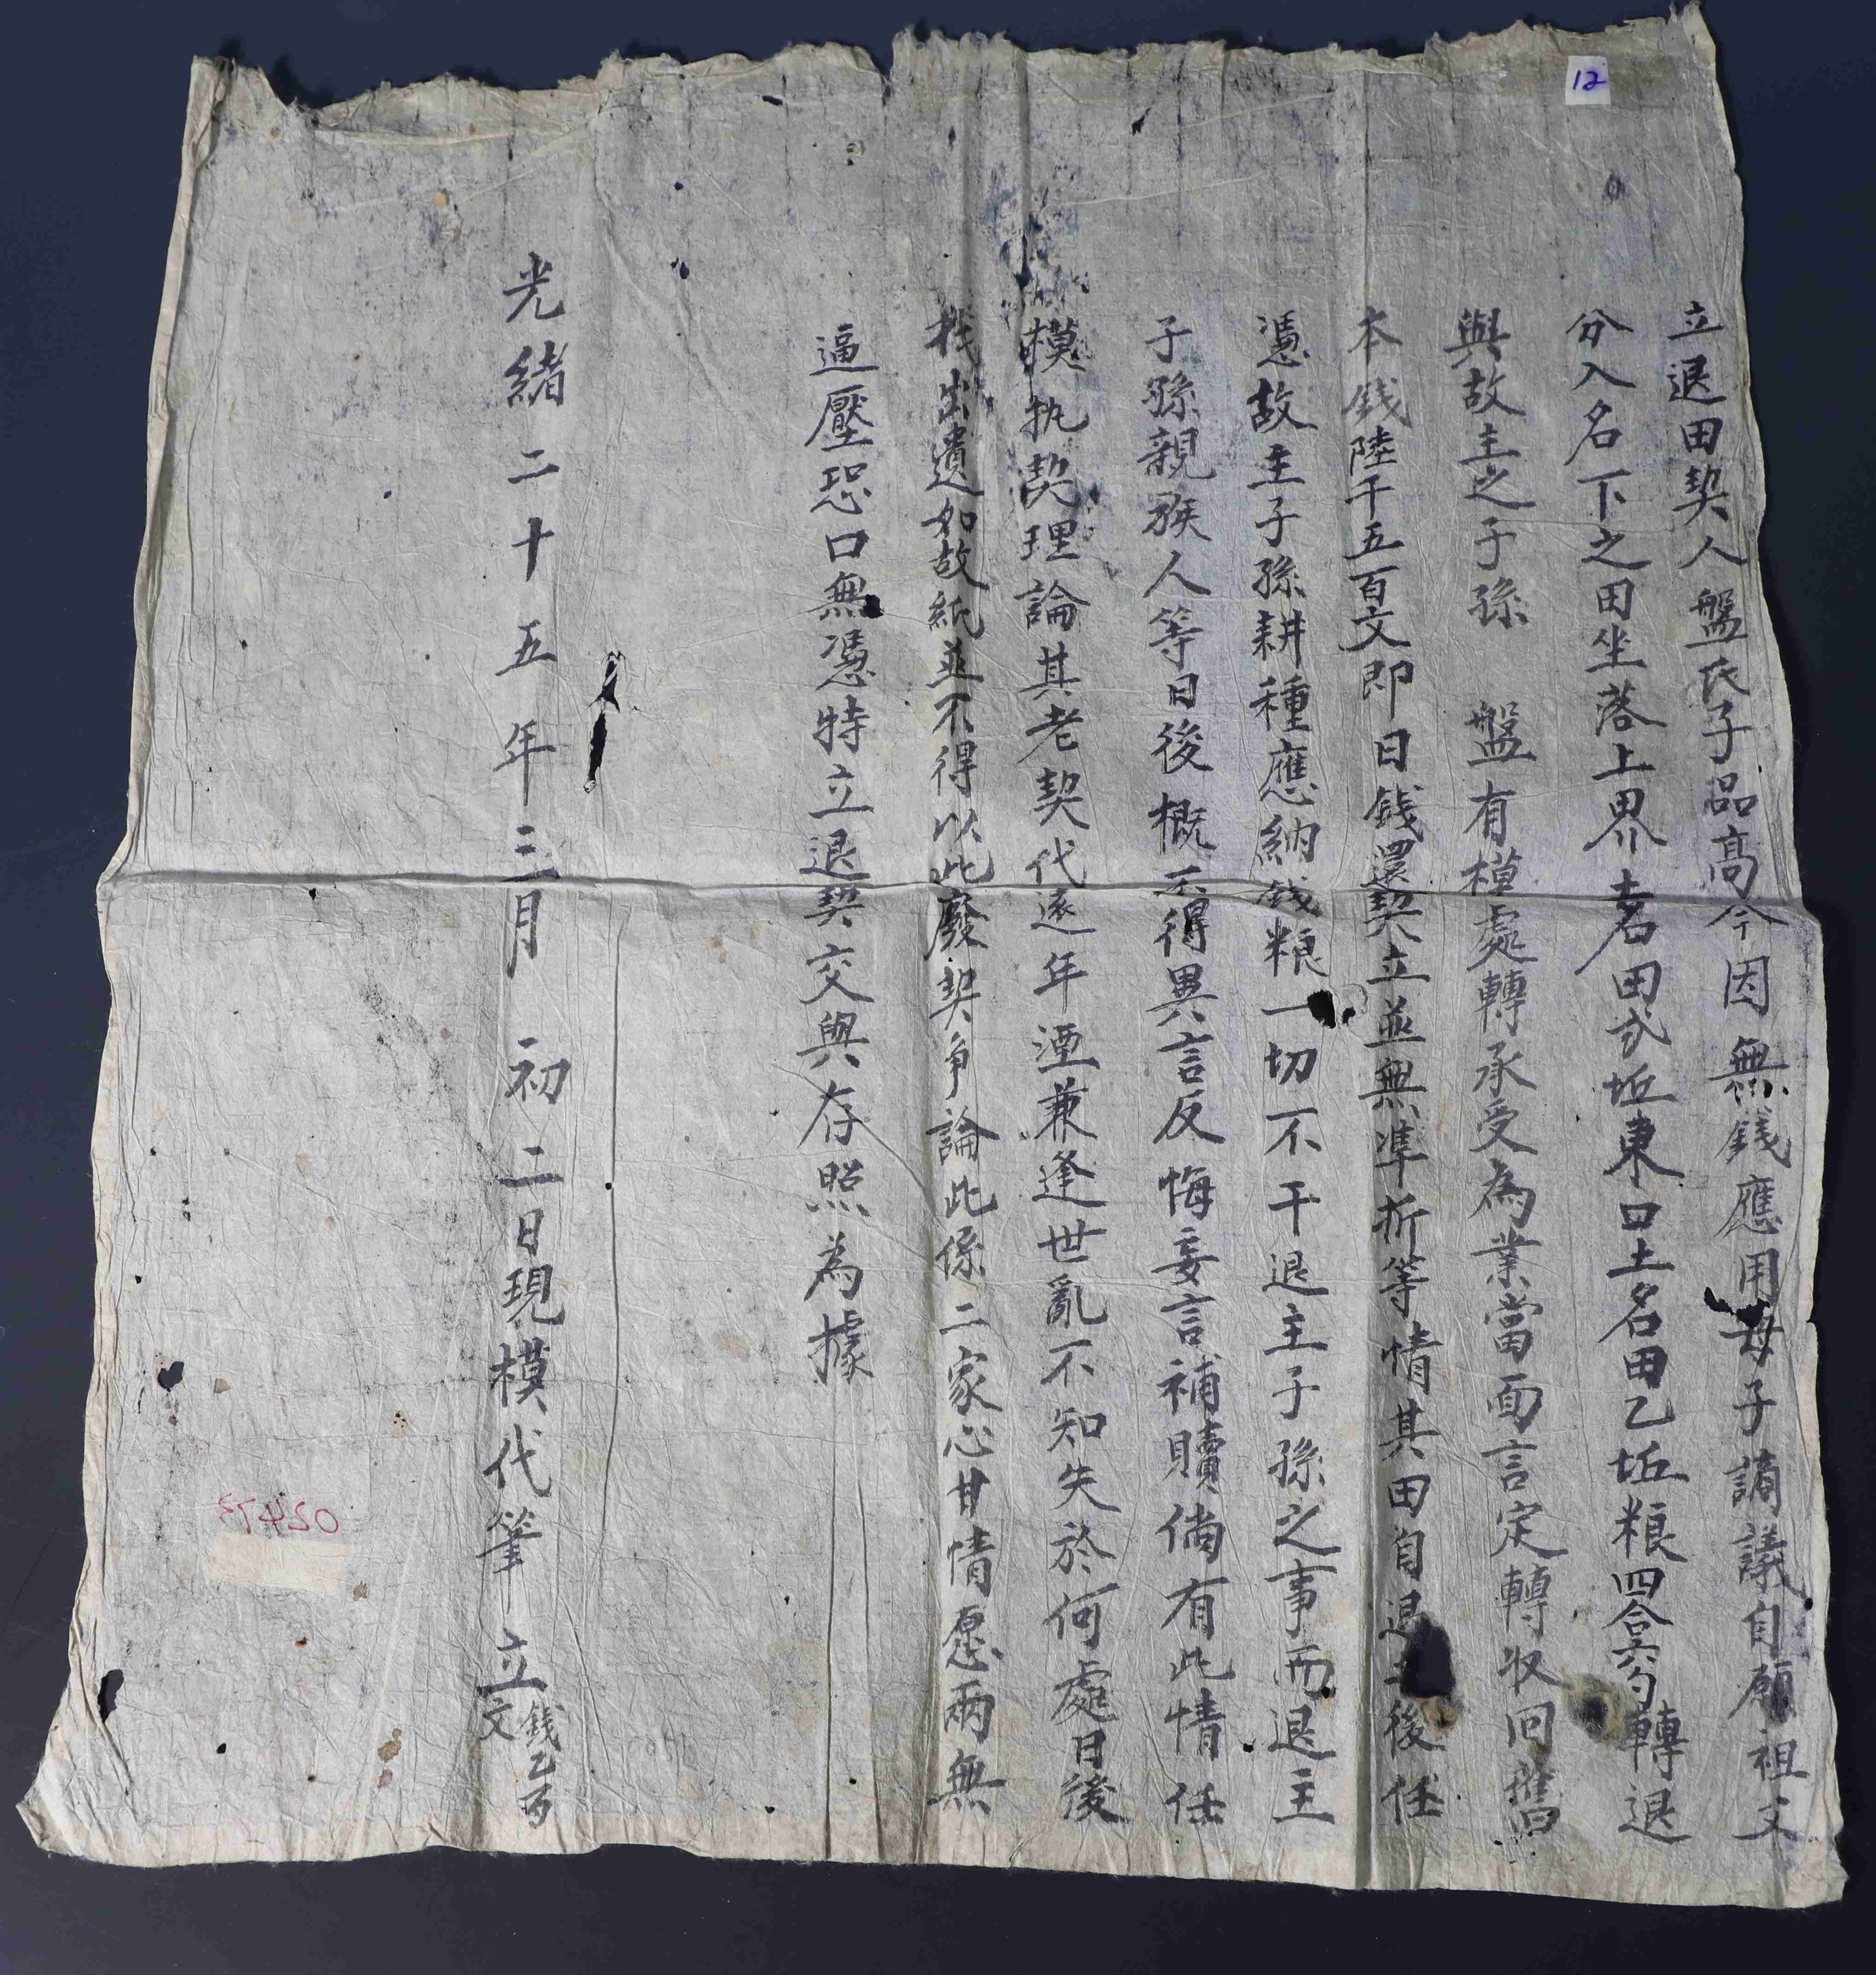 12
立退田契人盤氏子品高今因無錢應用母子謫議自願祖父
分入名下之田坐落上界土名田式坵東口土名田乙坵粮四合六勺轉退
與故主之子孫 盤有模處轉承受為業當面言定轉收回舊
本錢陸千五百文即日錢還契立並無準折等情其田自退之後任
憑故主子孫耕種應納錢粮一切不干退主子孫之事而退主
子孫親族人等日後概不得異言反悔妄言補贖倘有此情任
模执契理論其老契代遠年湮兼逢世亂不知失於何處日後
撿出遺如故紙並不得以此廢契爭論此係二家心甘情愿兩無
逼壓恐口無憑特立退契交與存照為據
光緒二十五年三月 初二日現模代筆 立 錢乙百文
024573